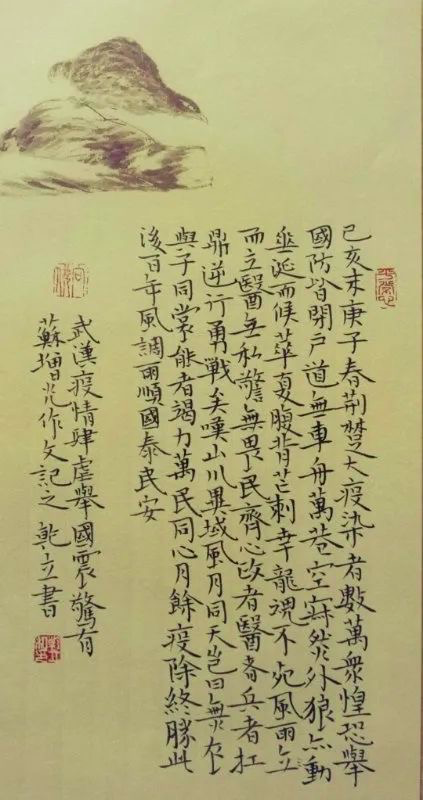 己亥末庚子春荆楚大疫染者數萬衆惶恐舉
國防皆閉戶道無車舟萬巷空寂然外狼亦動
垂延而候華夏腹背芒刺幸龍魂不死風雨立
而立醫無私警無畏民齊心政者醫者兵者扛
鼎逆行勇戰矣嘆山川異域風月同天豈曰無衣
與子同裳能者竭力萬民同心月餘疫除終勝此
後百年風調雨順國泰民安
武漢疫情肆虐舉國震驚有
蘇增作文記之 乾立書